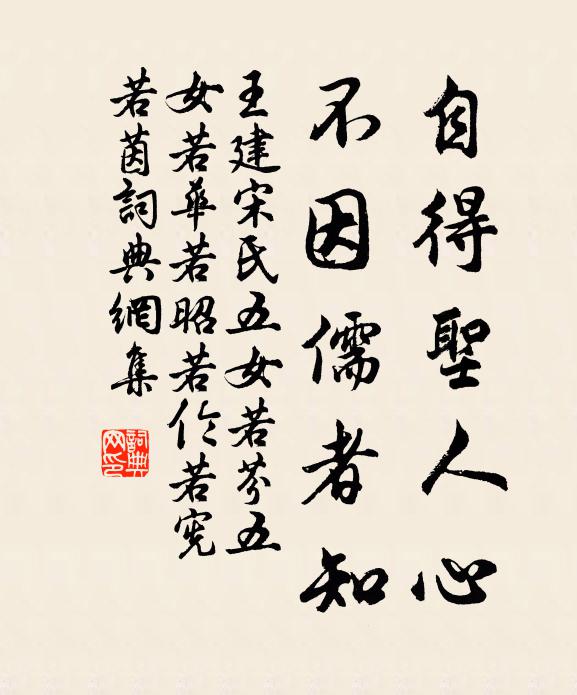 自得聖人心
不因儒者知
王建宋氏五女若芬五
女若華若昭若伦若宪
若茵詞典網集
詞典網印